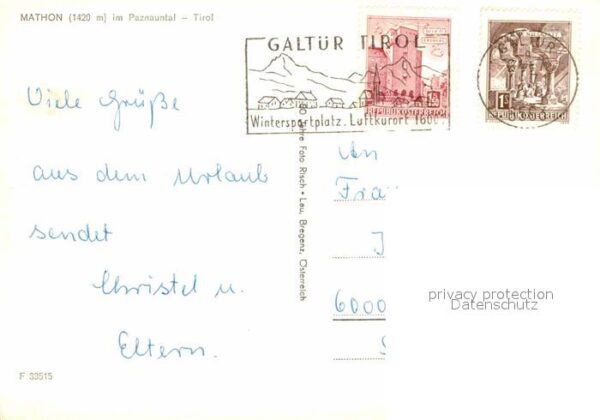 MATHON (1420 m) im Paznauntal – Tirol
GALTÜR TIROL
Wintersportplatz. Luftkurort 1600
1.50
REPUBLIK ÖSTERREICH
1S
REPUBLIK ÖSTERREICH
Viele Grüße
aus dem Urlaub
sendet
Christel u.
Eltern.
Jahre Foto Risch • Lau, Bregenz, Österreich
An
Fra
6000
privacy protection
Datenschutz
F 33515